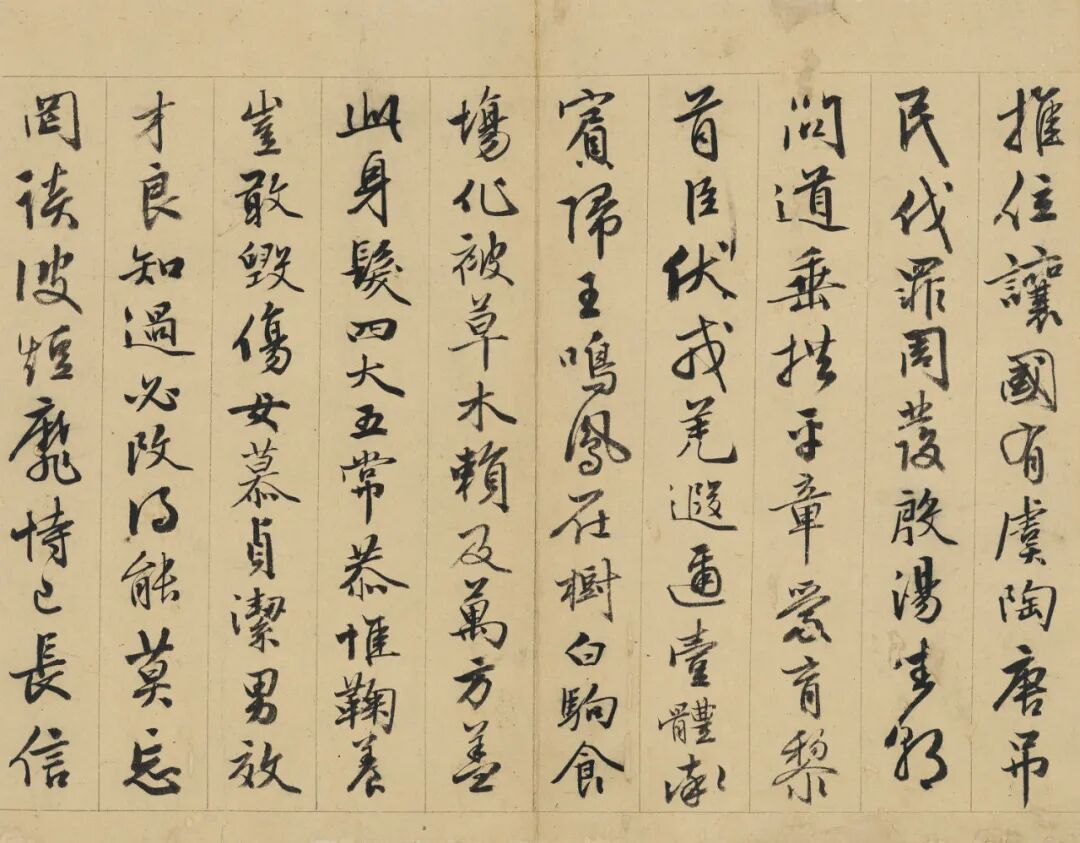 推位讓國有虞陶唐弔
民伐罪周發殷湯坐朝
問道垂拱平章愛育黎
首臣伏戎羌遐邇壹體率
賓歸王鳴鳳在樹白駒食
場化被草木賴及萬方蓋
此身髮四大五常恭惟鞠養
豈敢毀傷女慕貞潔男效
才良知過必改得能莫忘
罔談彼短靡恃己長信